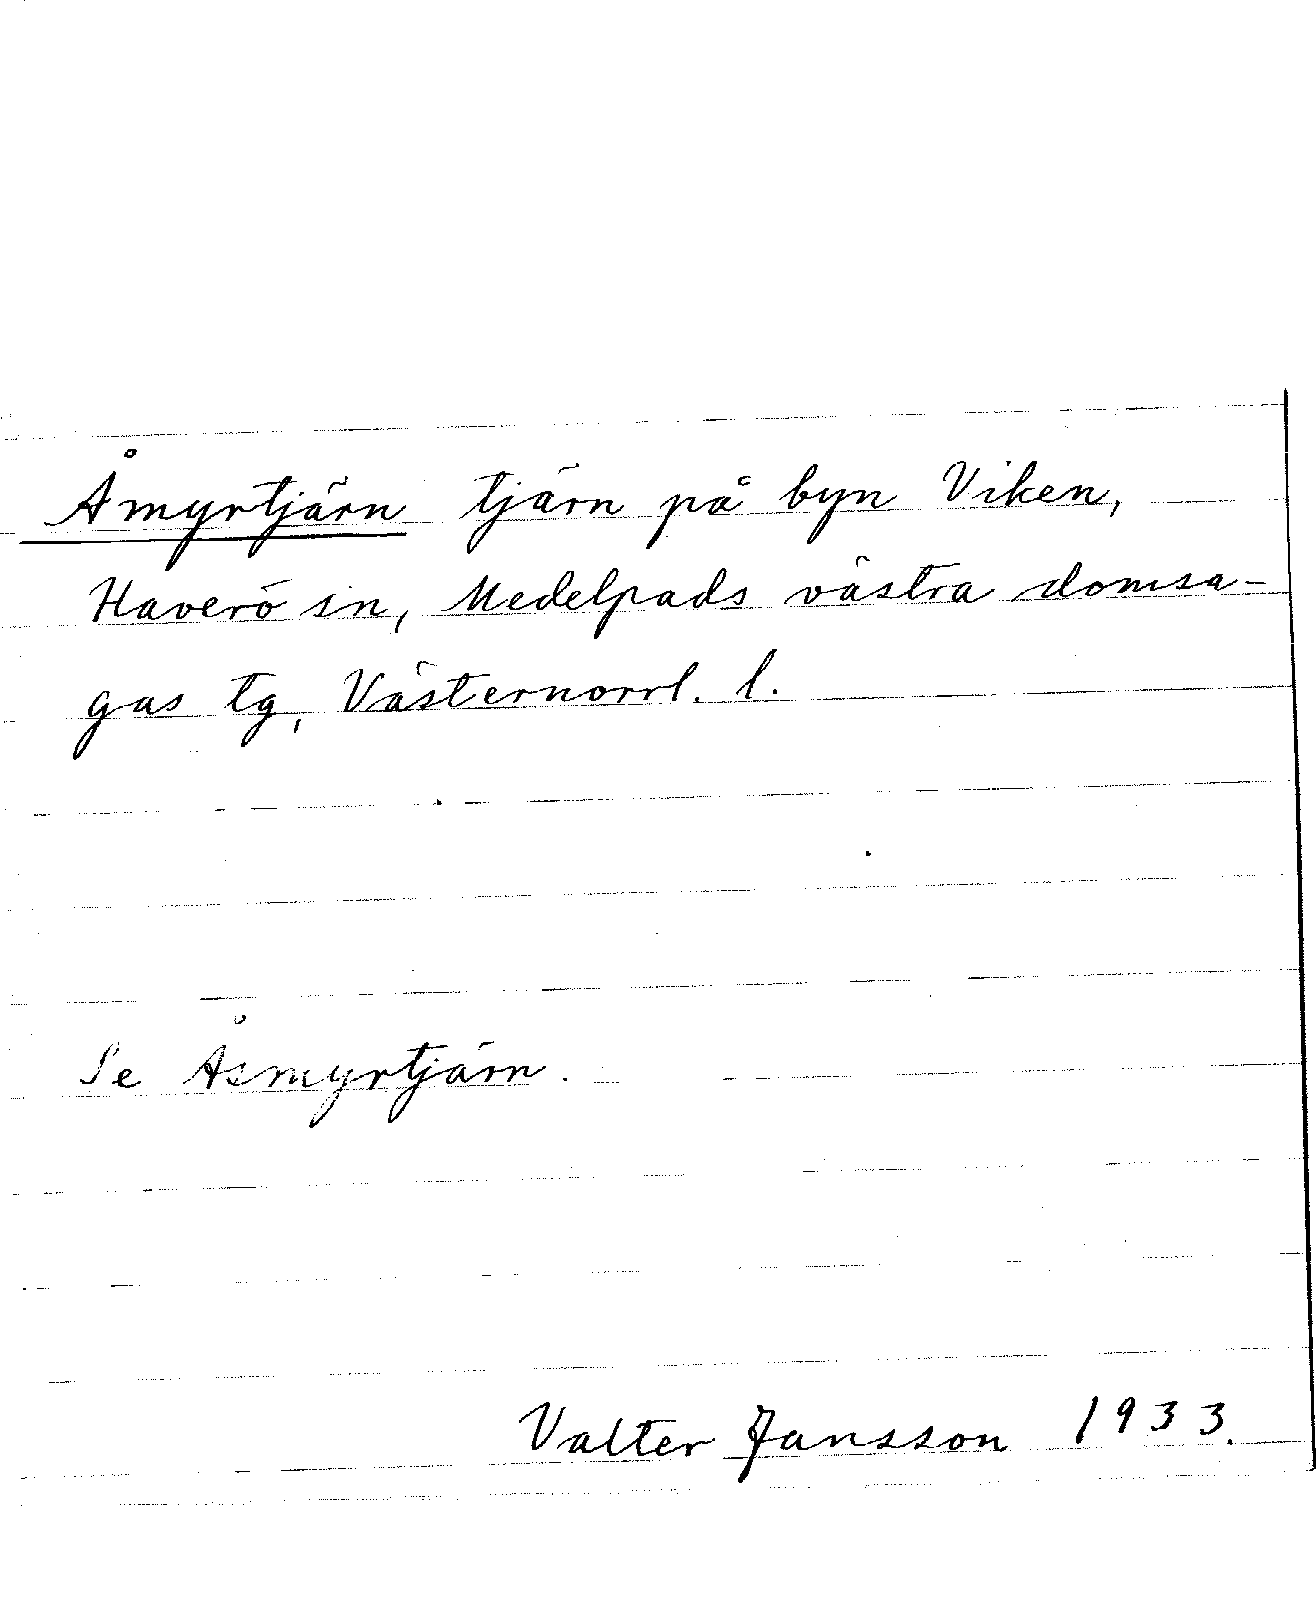 Åmyrtjärn tjärn på byn Viken,
Haverö sn, Medelpads västra domsa-
gas tg, Västernorrl. l.
Se Åsmyrtjärn.
Valter Jansson 1933.